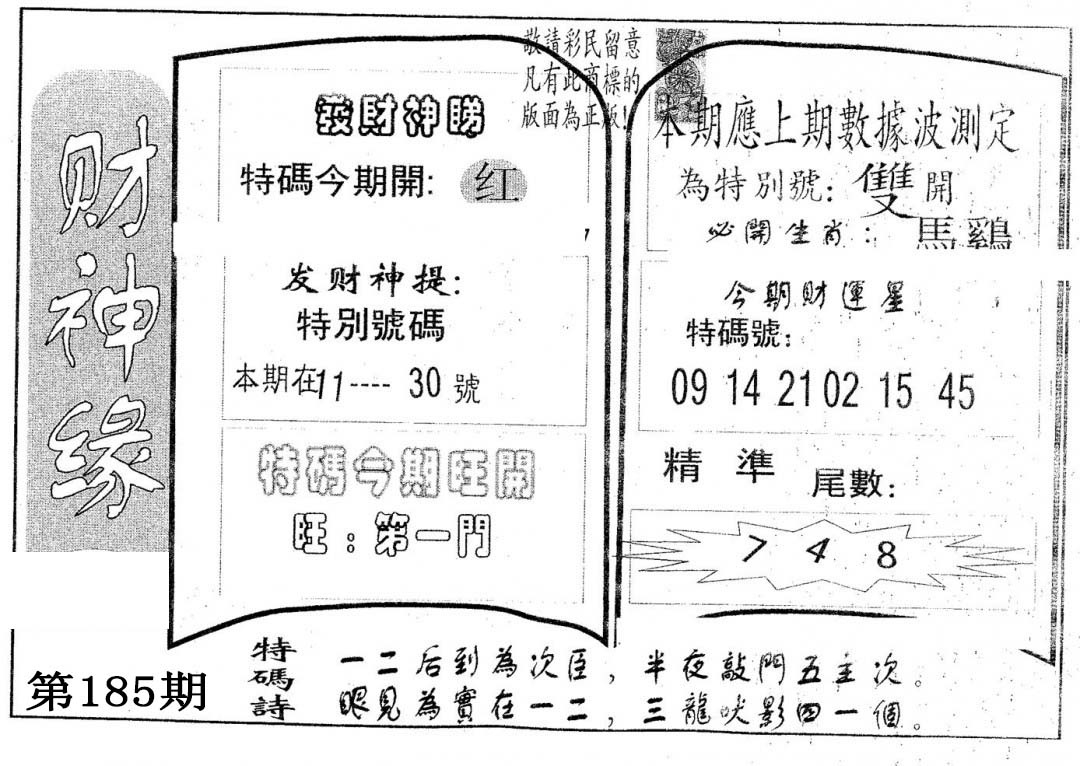 财神缘
第185期
敬請彩民留意
凡有此商標的
版面為正版!
發財神睇
特碼今期開: 红
发财神提:
特別號碼
本期在11----30號
特碼今期旺開
旺:第一門
本期應上期數據波測定
為特別號: 雙 開
必開生肖: 馬 鷄
今期財運星
特碼號:
09 14 21 02 15 45
精準 尾數:
7 4 8
特碼詩
一二后到為次臣,半夜敲門五主次。
眼見為實在一二,三龍吠影四一個。